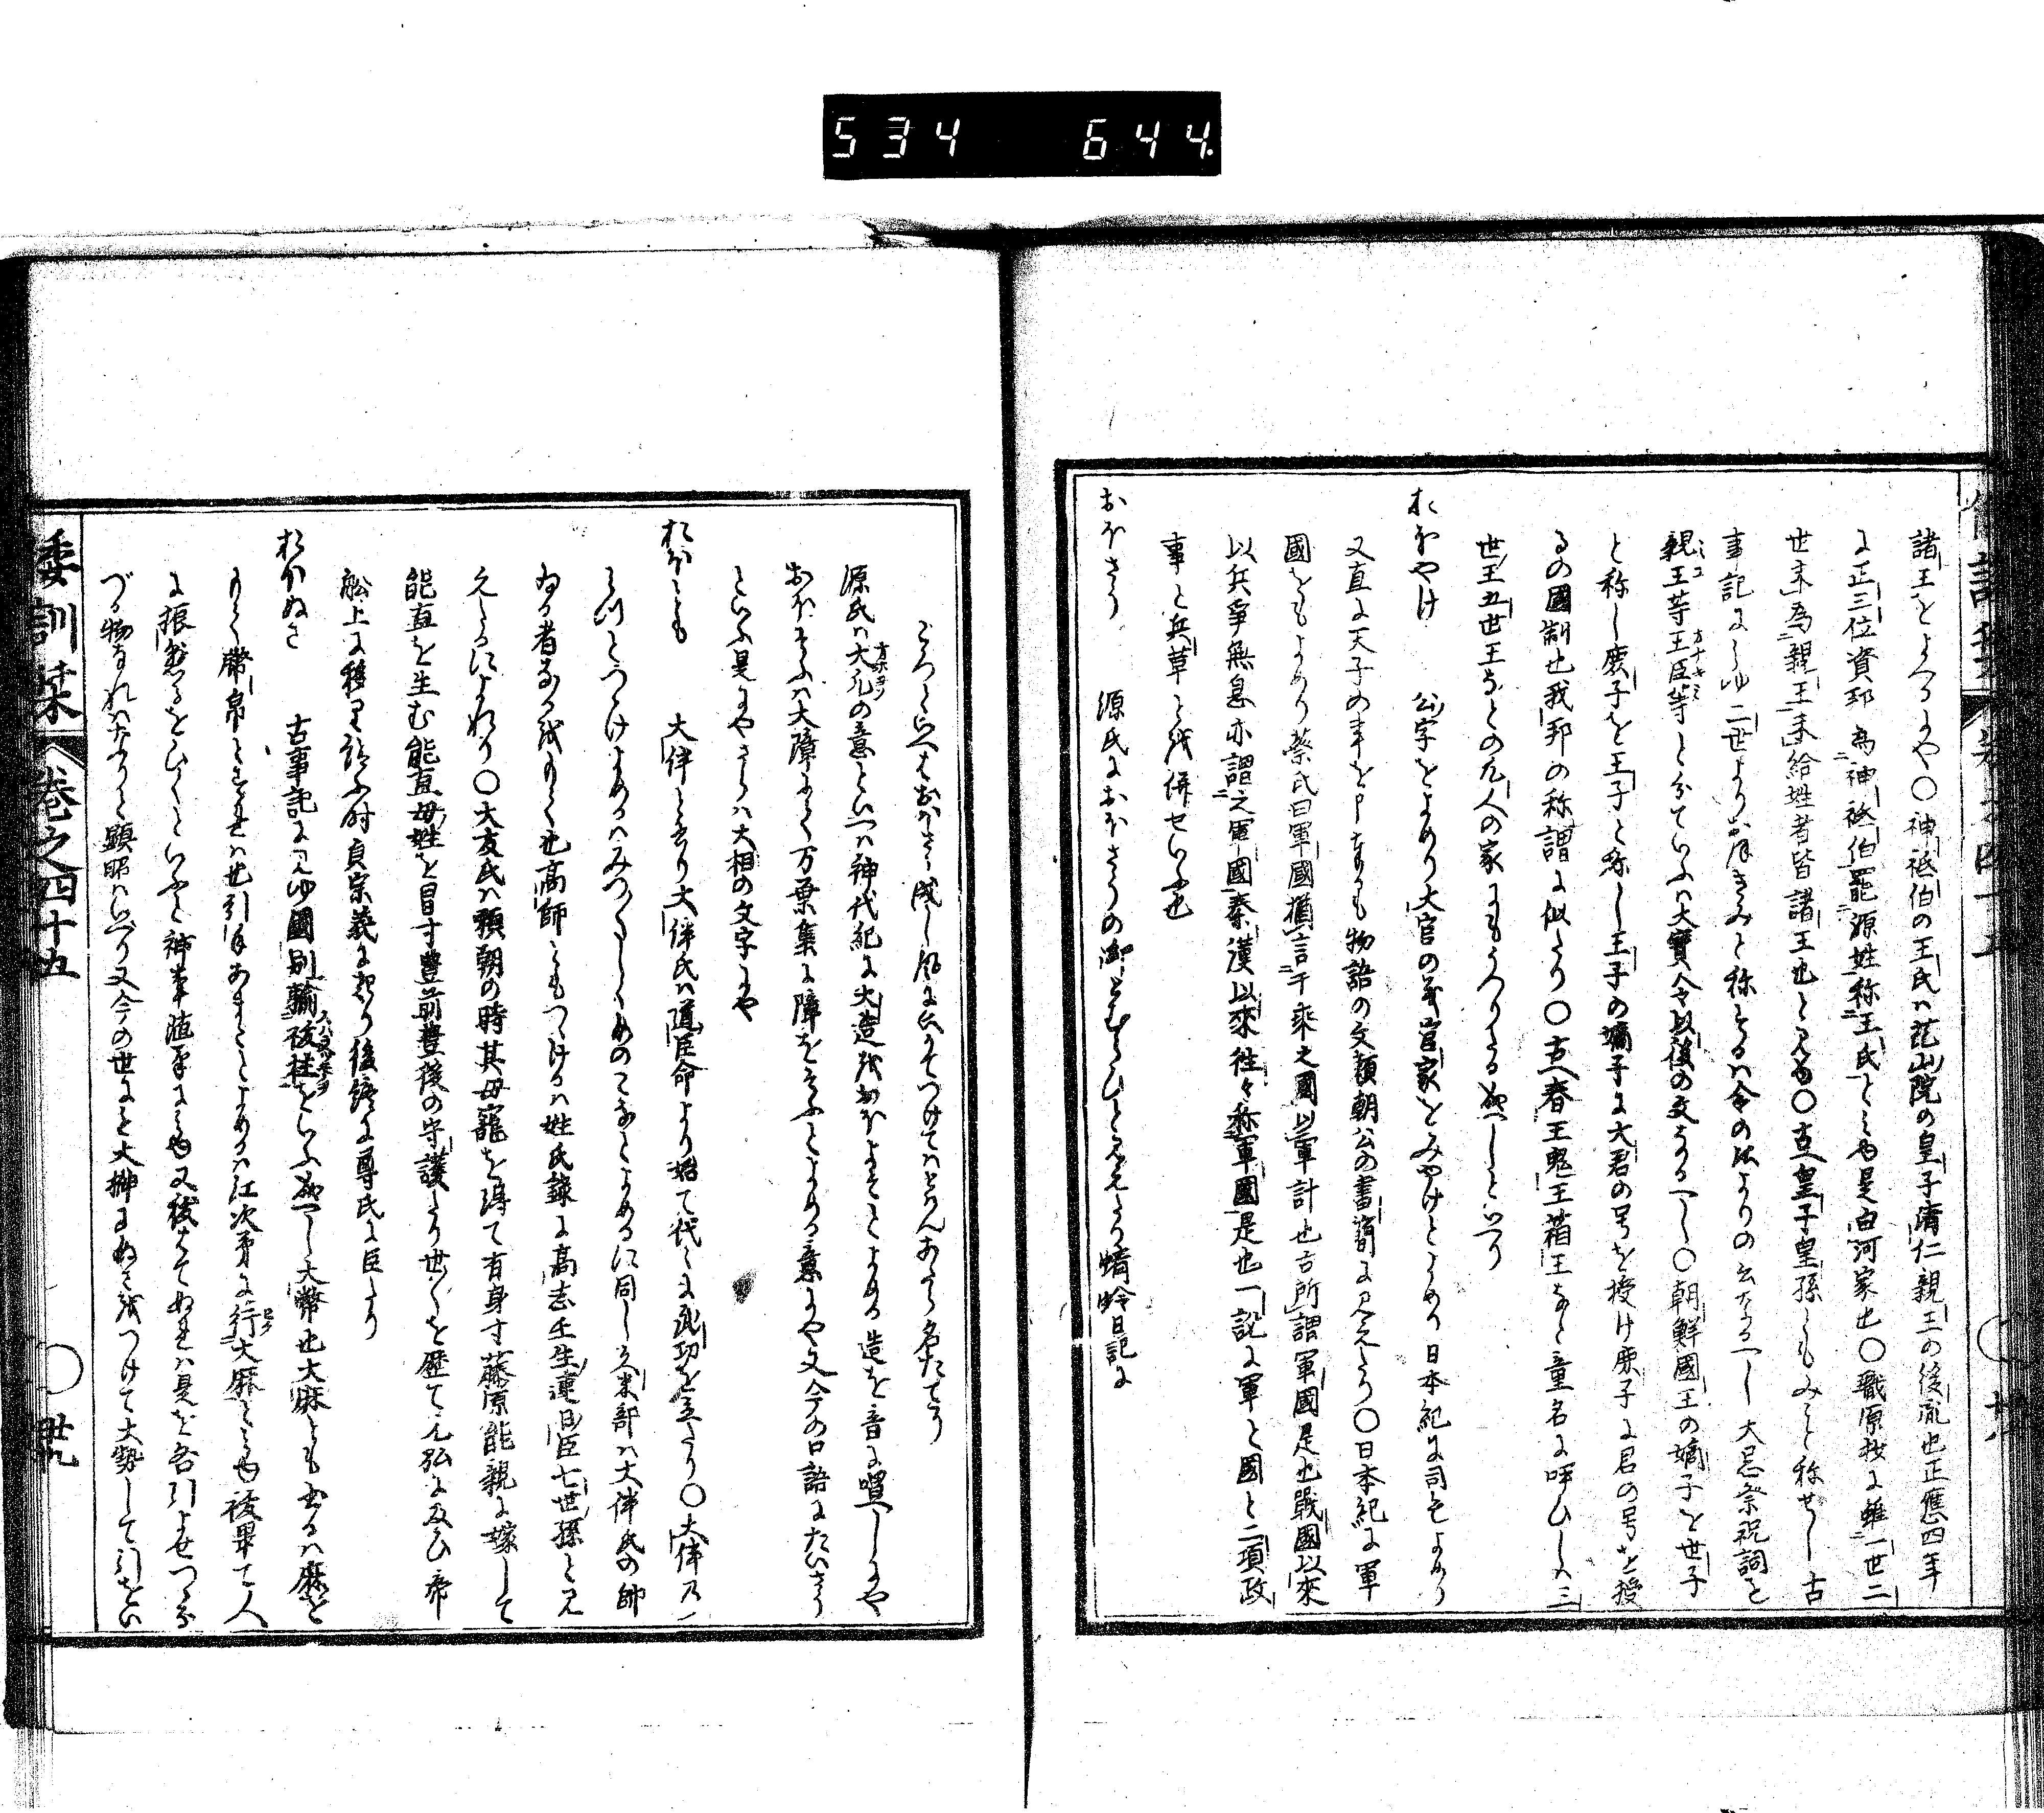 534 644.
諸王をよへるにや〇神祇伯の王氏ハ花山院の皇子清仁親王の後胤也正應四年
に正三位資邦為神祇伯罷源姓称王氏とみゆ是白河家也〇職原抄に雖一世二
世未為親王未給姓者皆諸王也と見ゆ〇古へ皇子皇孫ともみこと称せし古
事記にみゆ二世よりおほきみと称するハ令の比よりの云なるへし大忌祭祝詞を
親王等王臣等と分ていふハ大寶令以後の文なるへし〇朝鮮國王の嫡子を世子
と称し庶子を王子と称し王子の嫡子に大君の号を授け庶子に君の号を授
るの國制也我邦の称謂に似たり〇古へ春王鬼王菊王なと童名に呼ひしハ三
世王五世王なとの凡人の家にもうつりたる成へしといへり
おほやけ 公字をよめり大官の義官家をみやけとよめり日本紀に司もよめり
又直に天子の事を申奉るも物語の文頼朝公の書簡に見えたり〇日本紀に軍
國をもよめり蔡氏曰軍國猶言千乘之國以軍計也古所謂軍國是也戰國以來
以兵爭無息亦謂之軍國秦漢以來往々称軍國是也一説に軍と國と二項政
事と兵革と成併せいふ也
おほさう 源氏におほさうの御とむらひと見えたり蜻蛉日記に
ころしもハおほさう成し風に
源氏ハ大凡の意といへハ神代紀に大造成おほよそとよめる造を音に唱へしにや
おほそふハ大障にて万葉集に障をそふとよめる意にや又今の口語にたいさう
といふ是にやさらハ大相の文字にや
おほとも 大伴と書り大伴氏ハ道臣命より始て代々に武功を立たり〇大伴乃
みつとつゝけよめるハみつ〳〵しくめのこなとよめるに同し久米部ハ大伴氏の帥
ゐる者なる成もて也高師ともつゝけるハ姓氏録に高志壬生連日臣七世孫と見
えたるによれり〇大友氏ハ頼朝の時其母寵を得て有身す藤原能親に嫁して
能直を生む能直母姓を冒す豊前豊後の守護たり世々を歴て元弘に及ひ帝
舩上に移り給ふ時貞宗義に起り後終に尊氏に臣たり
おほぬさ 古事記に見ゆ國別輸祓柱をいふ成へし大幣也大麻とも書るハ麻を
もて幣帛とすれは也引手あまたとよめるハ江次第に行大麻とみゆ祓畢て人
に振懸るをひくといふと神幸隨筆にみゆ又祓はてぬれは是を各引よせつゝな
づる物なれハなりと顯昭ハいへり又今の世にも大榊にぬさ成つけて大勢して引をい
倭訓栞 巻之四十五 〇 廿九